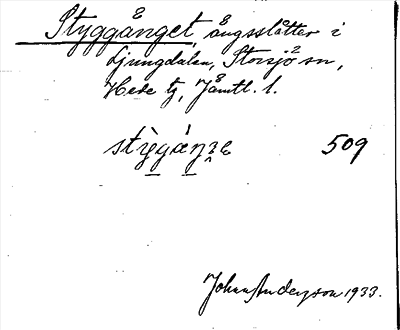 Styggånget, ångsslåtter i
Ljungdalen, Storsjö sn,
Hede tg, Jämtl. l.
509
Johan Anderson 1933.